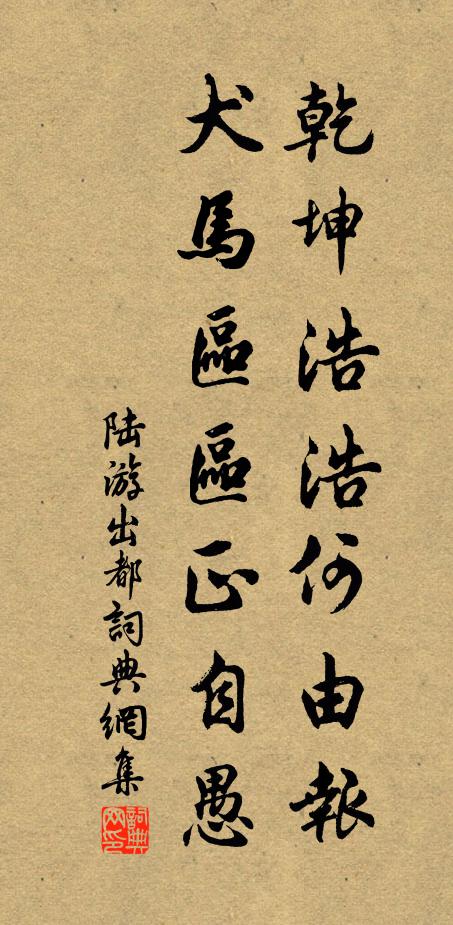 乾坤浩浩何由報
犬馬區區正自愚
陆游出都詞典網集
詞典網印